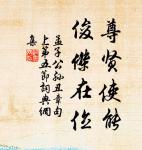 尊贤使能
俊傑在位
孟子公孙丑章句
上第五節詞典網
集